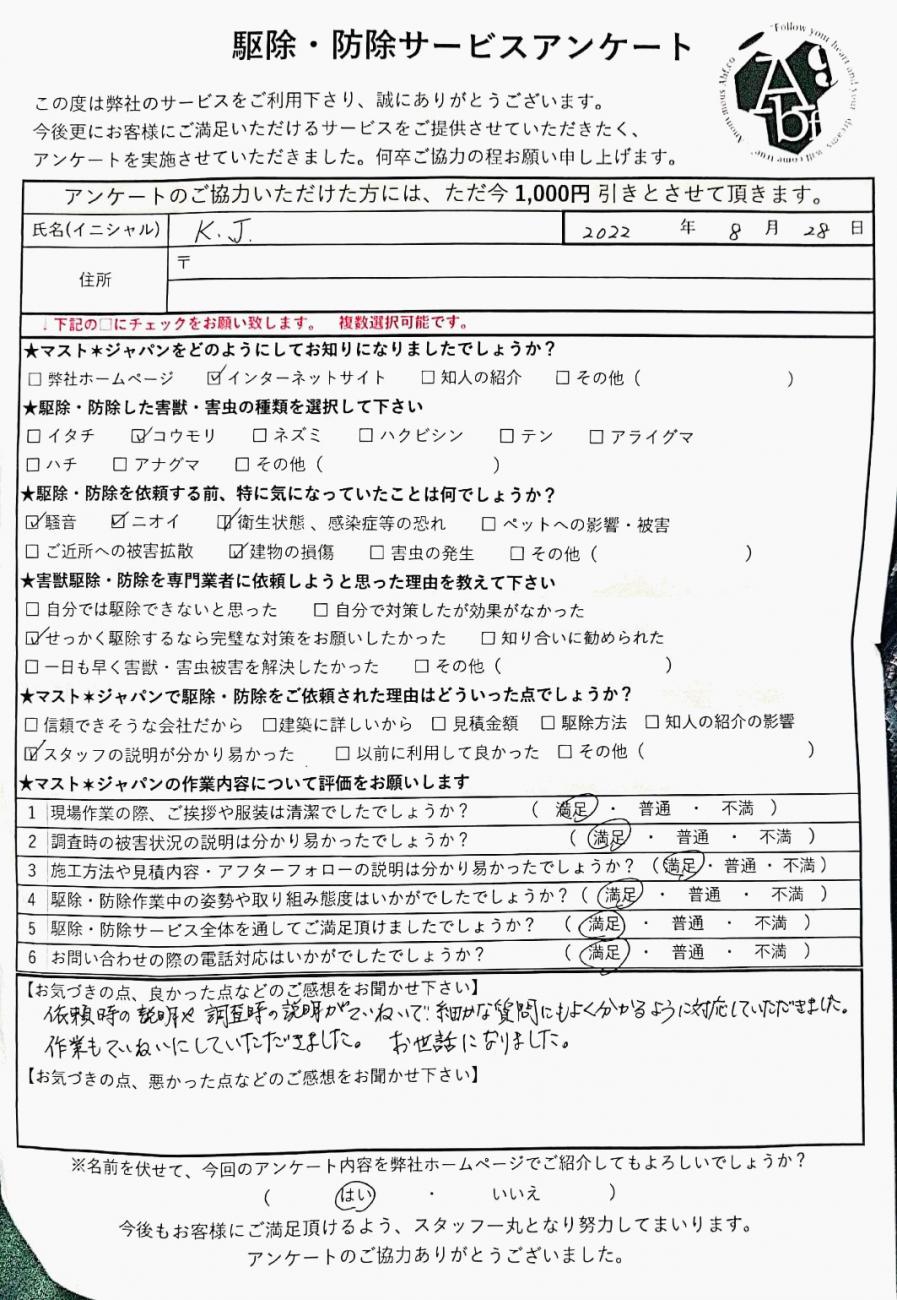 駆除・防除サービスアンケート
Follow your heart and your dreams will come true
Anonymous Abf.co
Ag
bf
この度は弊社のサービスをご利用下さり、誠にありがとうございます。
今後更にお客様にご満足いただけるサービスをご提供させていただきたく、
アンケートを実施させていただきました。何卒ご協力の程お願い申し上げます。
アンケートのご協力いただけた方には、ただ今 1,000円 引きとさせて頂きます。
氏名(イニシャル) K.J. 2022 年 8 月 28 日
住所 〒
↓下記の□にチェックをお願い致します。 複数選択可能です。
★マスト✶ジャパンをどのようにしてお知りになりましたでしょうか？
□ 弊社ホームページ ☑ インターネットサイト □ 知人の紹介 □ その他（ ）
★駆除・防除した害獣・害虫の種類を選択して下さい
□ イタチ ☑ コウモリ □ ネズミ □ ハクビシン □ テン □ アライグマ
□ ハチ □ アナグマ □ その他（ ）
★駆除・防除を依頼する前、特に気になっていたことは何でしょうか？
☑ 騒音 ☑ ニオイ ☑ 衛生状態、感染症等の恐れ □ ペットへの影響・被害
□ ご近所への被害拡散 ☑ 建物の損傷 □ 害虫の発生 □ その他（ ）
★害獣駆除・防除を専門業者に依頼しようと思った理由を教えて下さい
□ 自分では駆除できないと思った □ 自分で対策したが効果がなかった
☑ せっかく駆除するなら完璧な対策をお願いしたかった □ 知り合いに勧められた
□ 一日も早く害獣・害虫被害を解決したかった □ その他（ ）
★マスト✶ジャパンで駆除・防除をご依頼された理由はどういった点でしょうか？
□ 信頼できそうな会社だから □ 建築に詳しいから □ 見積金額 □ 駆除方法 □ 知人の紹介の影響
☑ スタッフの説明が分かり易かった □ 以前に利用して良かった □ その他（ ）
★マスト✶ジャパンの作業内容について評価をお願いします
1 現場作業の際、ご挨拶や服装は清潔でしたでしょうか？ （ 満足 ・ 普通 ・ 不満 ）
2 調査時の被害状況の説明は分かり易かったでしょうか？ （ 満足 ・ 普通 ・ 不満 ）
3 施工方法や見積内容・アフターフォローの説明は分かり易かったでしょうか？（ 満足 ・ 普通 ・ 不満 ）
4 駆除・防除作業中の姿勢や取り組み態度はいかがでしたでしょうか？（ 満足 ・ 普通 ・ 不満 ）
5 駆除・防除サービス全体を通してご満足頂けましたでしょうか？ （ 満足 ・ 普通 ・ 不満 ）
6 お問い合わせの際の電話対応はいかがでしたでしょうか？ （ 満足 ・ 普通 ・ 不満 ）
【お気づきの点、良かった点などのご感想をお聞かせ下さい】
依頼時の説明や調査時の説明がていねいで、細かな質問にもよく分かるように対応していただきました。
作業もていねいにしていただきました。 お世話になりました。
【お気づきの点、悪かった点などのご感想をお聞かせ下さい】
※名前を伏せて、今回のアンケート内容を弊社ホームページでご紹介してもよろしいでしょうか？
（ はい ・ いいえ ）
今後もお客様にご満足頂けるよう、スタッフ一丸となり努力してまいります。
アンケートのご協力ありがとうございました。